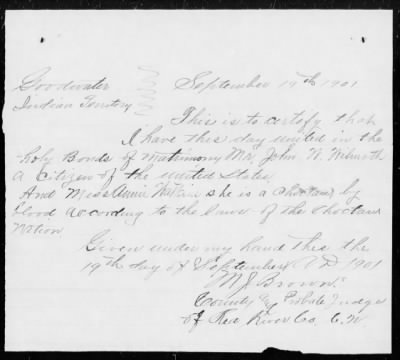 Goodwater
Indian Territory
September 19th 1901
This is to certify that
I have this day united in the
holy Bonds of matrimony Mr. John W. Wilmoth
a Citizen of the united States,
And Miss Annie she is a Choctaw by
blood according to the laws of the Choctaw
Nation.
Given under my hand this the
19th day of September A D 1901
M J Brown
County Probate Judge
of Red River Co. C. N.